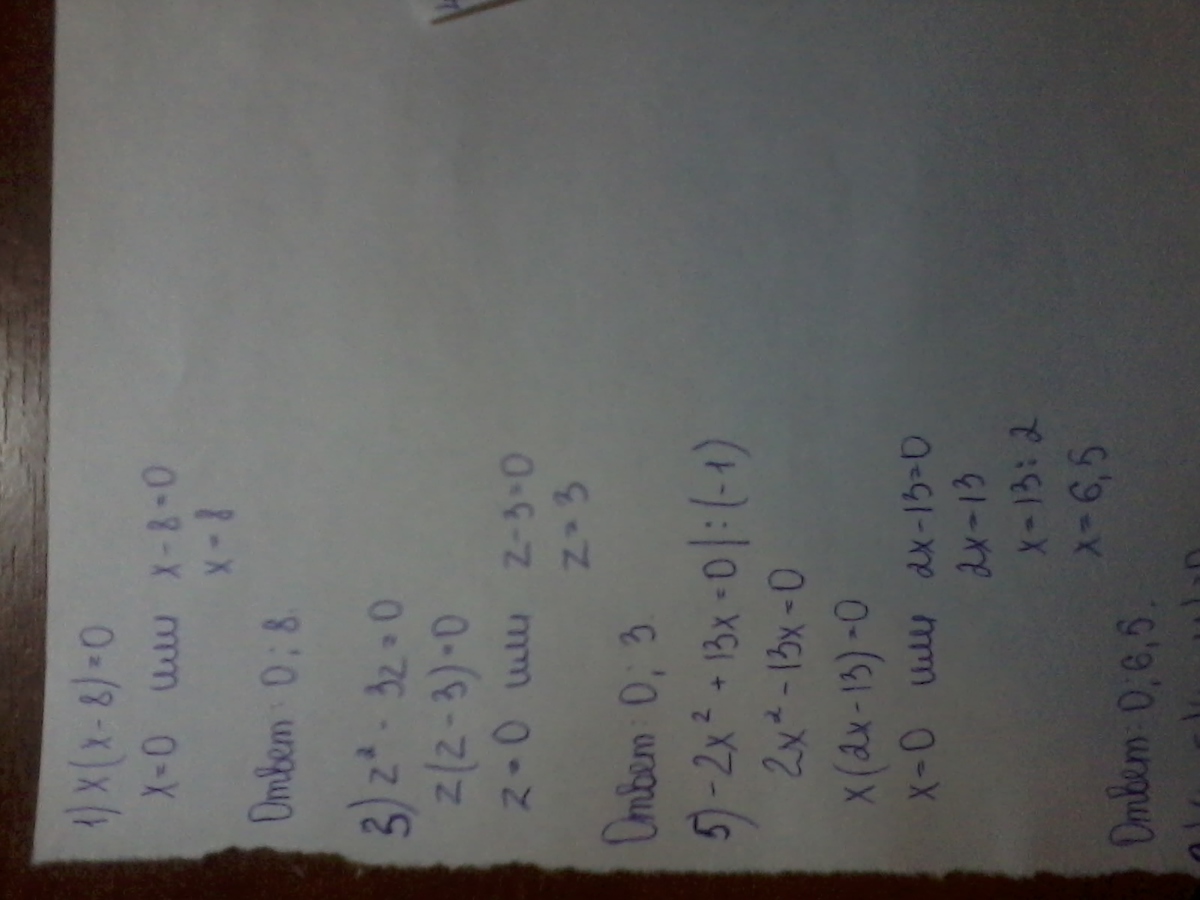 1) x(x-8)=0
x=0 или x-8=0
x=8
Ответ: 0; 8.
3) z² - 3z=0
z(z-3)=0
z=0 или z-3=0
z=3
Ответ: 0; 3.
5) -2x² + 13x=0 | : (-1)
2x² - 13x=0
x(2x-13)=0
x=0 или 2x-13=0
2x=13
x=13:2
x=6,5
Ответ: 0; 6,5.